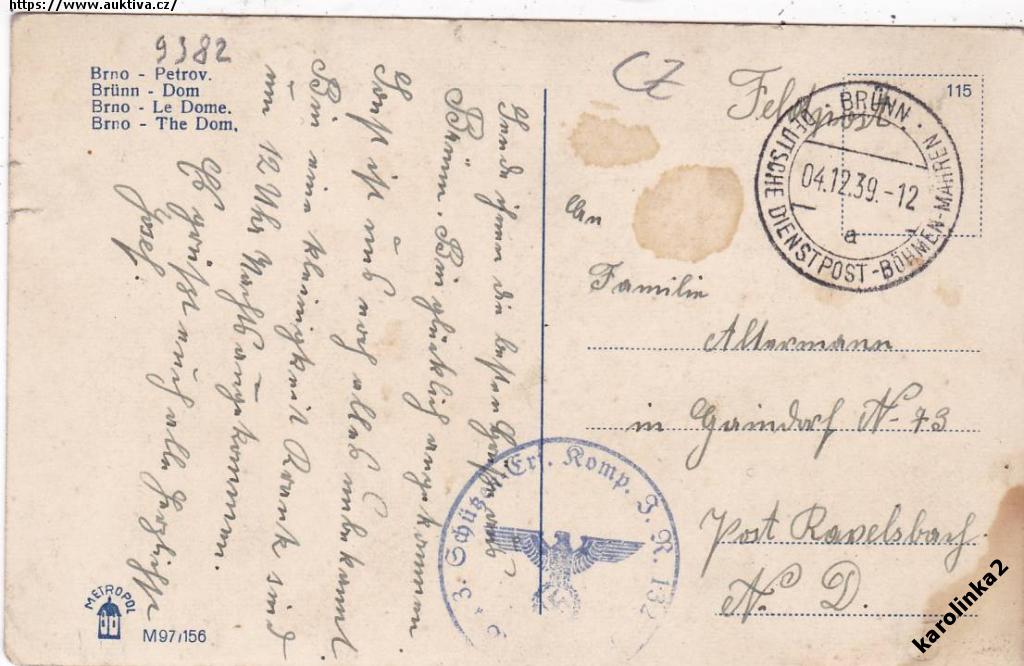 https://www.auktiva.cz/
9382
Brno - Petrov.
Brünn - Dom
Brno - Le Dome.
Brno - The Dom.
CZ
Feldpost
115
BRÜNN
DEUTSCHE DIENSTPOST-BÖHMEN-MÄHREN
04.12.39.-12
a
An
Familie
Altermann
in Gaindorf No 73
Post Ravelsbach
N. D.
Sende ihnen die besten Grüße aus
Brünn. Bin glücklich angekommen
Sonst ist uns noch alles unbekannt
Bin eine kleinigkeit Krank sind
um 12 Uhr Nachts angekommen.
Es grüßt euch alle herzlichst
Josef.
3. Schützen Ers. Komp. J. R. 132
METROPOL
M97/156
karolinka2